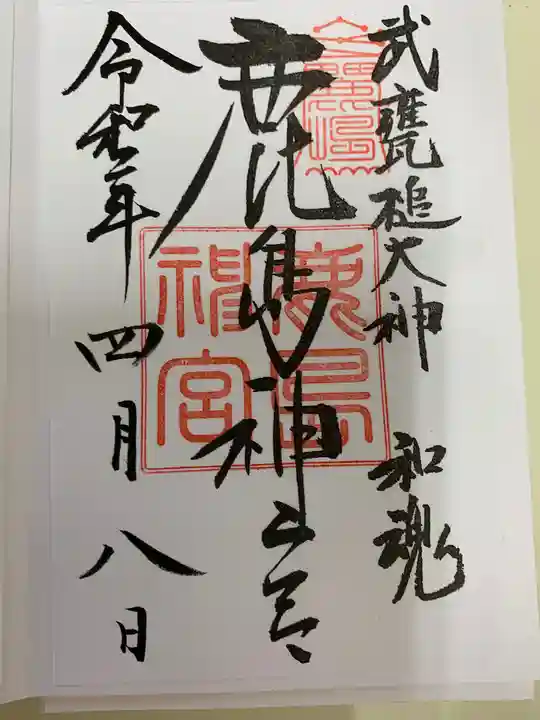 武甕槌大神 和魂
鹿島神宮
令和二年四月八日
鹿島
神宮